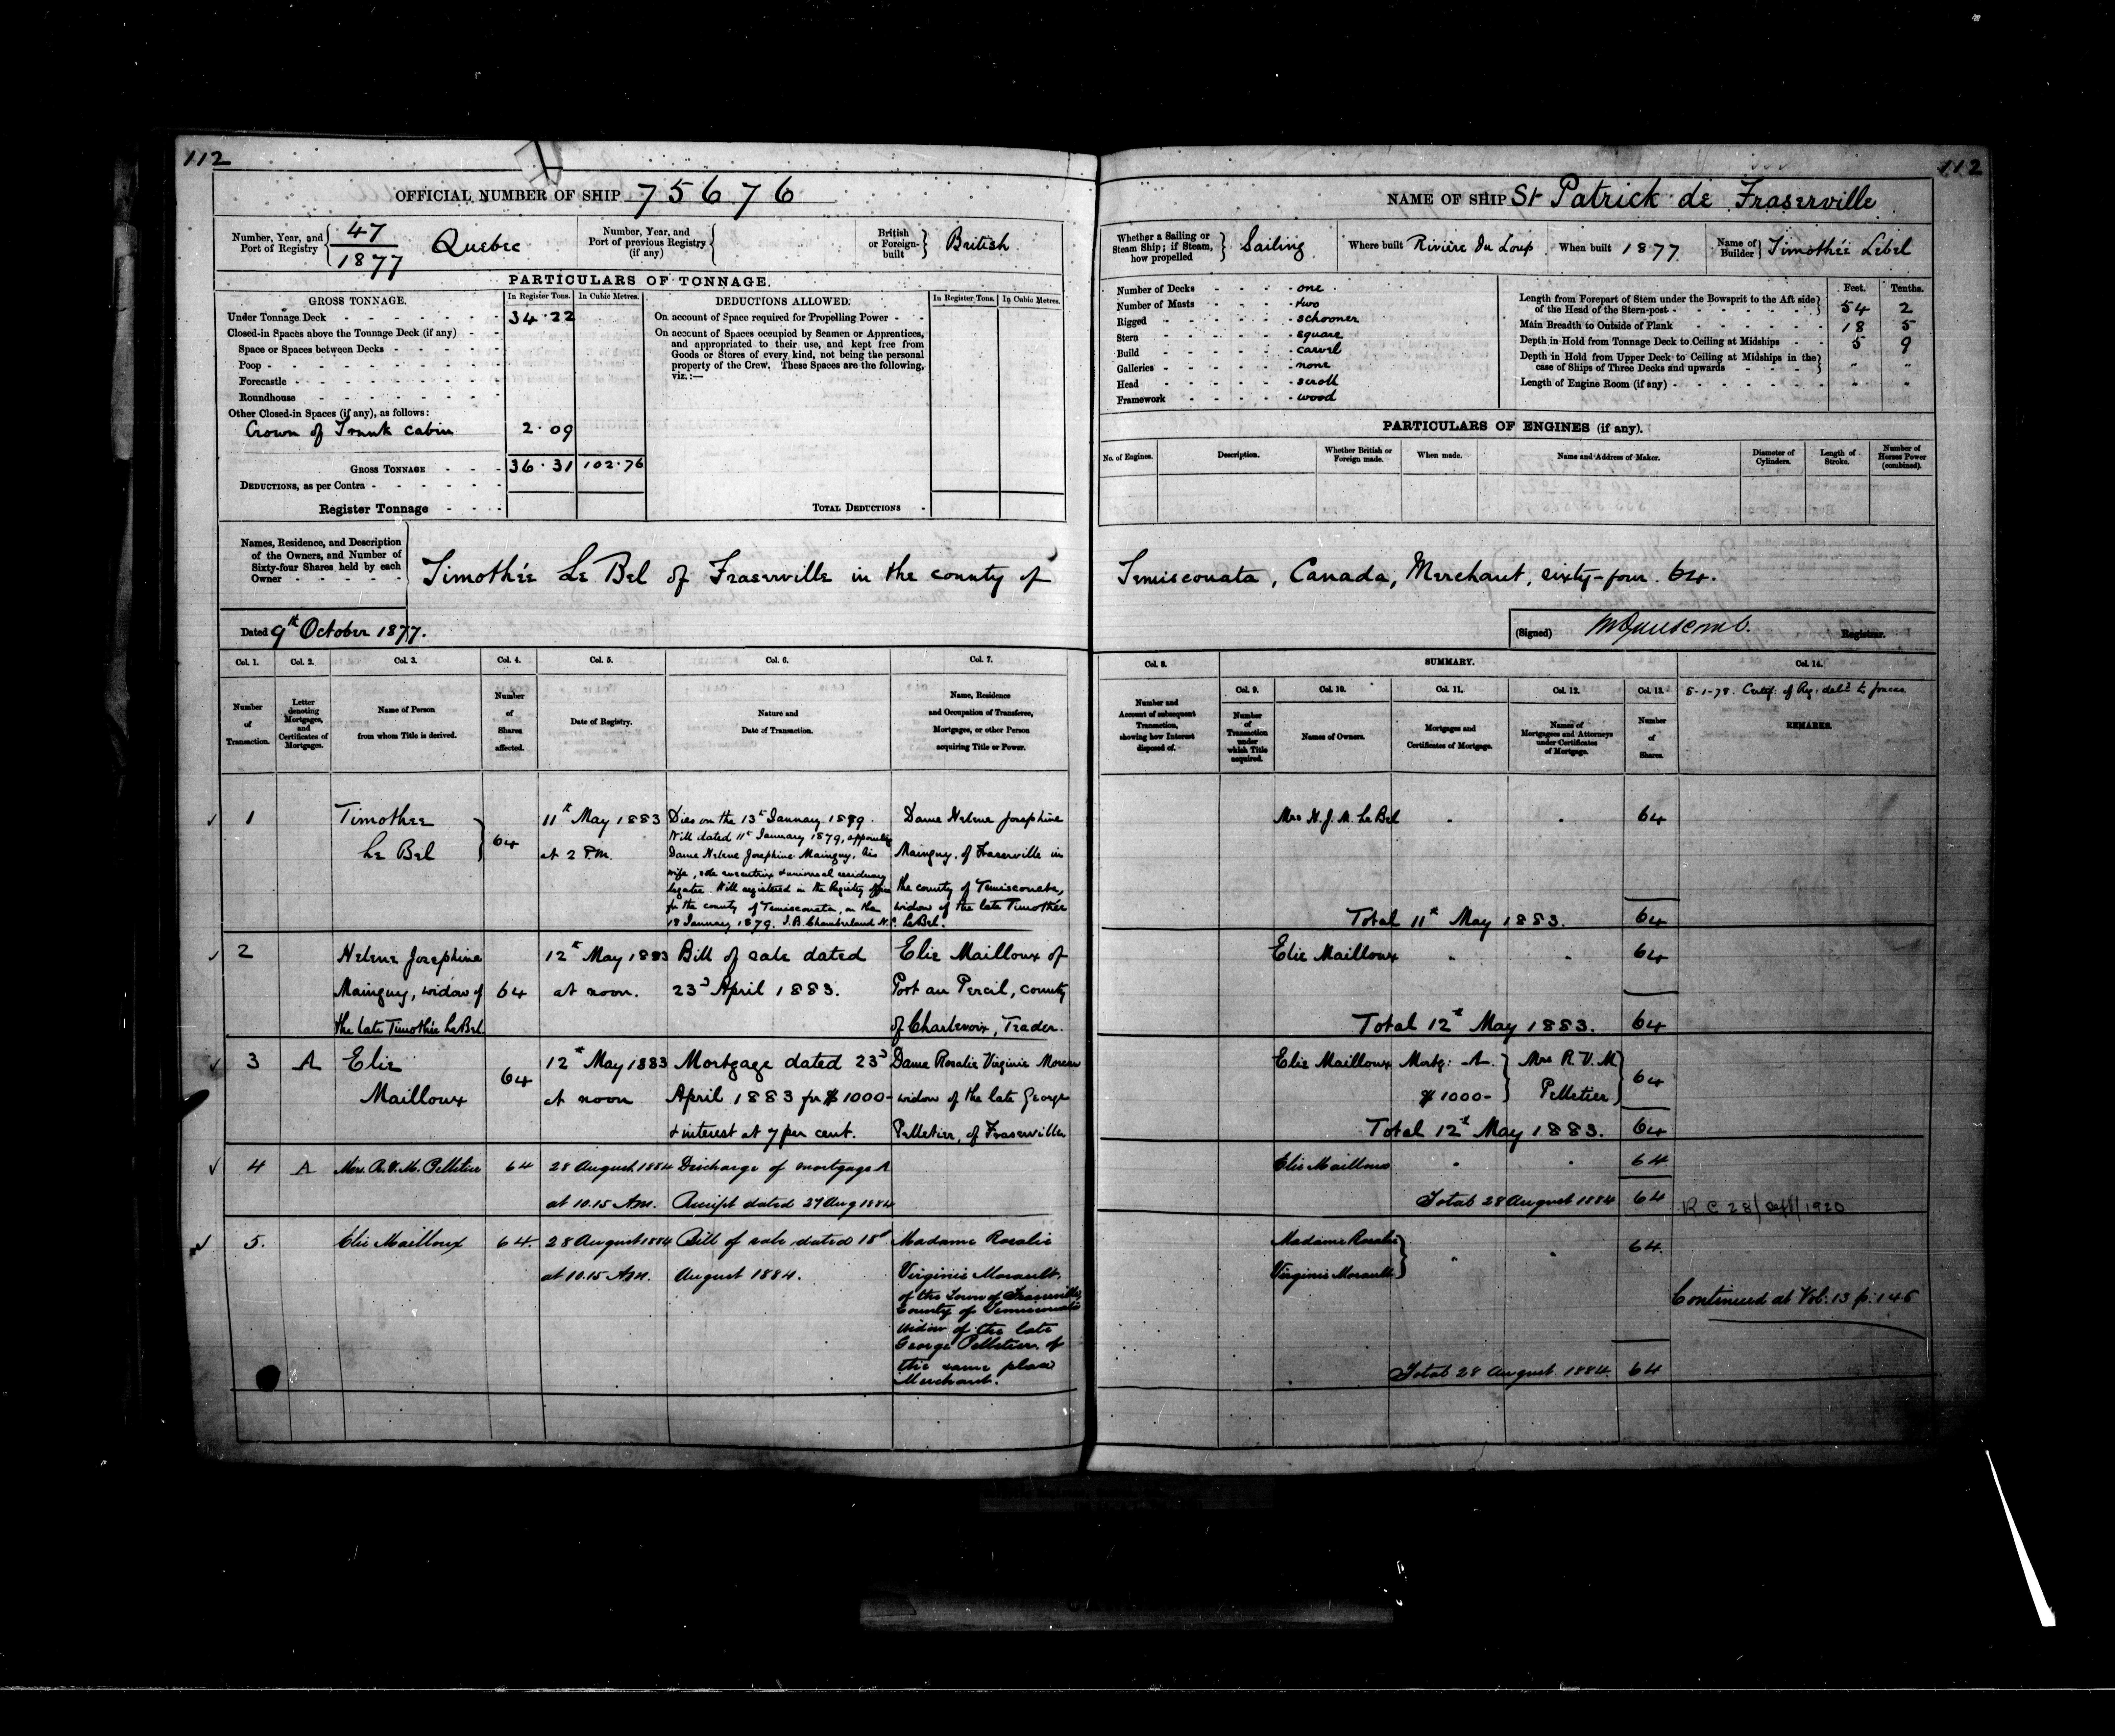 112
OFFICIAL NUMBER OF SHIP 75676
Number, Year, and Port of Registry 47/1877 Quebec
Number, Year, and Port of previous Registry (if any)
British or Foreign-built British
PARTICULARS OF TONNAGE.
GROSS TONNAGE. In Register Tons. In Cubic Metres.
Under Tonnage Deck 34.22
Closed-in Spaces above the Tonnage Deck (if any)
Space or Spaces between Decks
Poop
Forecastle
Roundhouse
Other Closed-in Spaces (if any), as follows:
Crown of Trunk cabin 2.09
GROSS TONNAGE 36.31 102.76
DEDUCTIONS, as per Contra
Register Tonnage
DEDUCTIONS ALLOWED. In Register Tons. In Cubic Metres.
On account of Space required for Propelling Power
On account of Spaces occupied by Seamen or Apprentices,
and appropriated to their use, and kept free from
Goods or Stores of every kind, not being the personal
property of the Crew. These Spaces are the following,
viz.:—
TOTAL DEDUCTIONS
Names, Residence, and Description
of the Owners, and Number of
Sixty-four Shares held by each
Owner
Timothée Le Bel of Fraserville in the county of
Dated 9th October 1877.
Col. 1. Col. 2. Col. 3. Col. 4. Col. 5. Col. 6. Col. 7.
Number of Transaction.
Letter denoting Mortgages, and Certificates of Mortgages.
Name of Person from whom Title is derived.
Number of Shares affected.
Date of Registry.
Nature and Date of Transaction.
Name, Residence and Occupation of Transferee, Mortgagee, or other Person acquiring Title or Power.
1
Timothee
Le Bel
64
11th May 1883
at 2 P.M.
Dies on the 13th January 1879.
Will dated 11th January 1879, appointing
Dame Helene Josephine Mainguy, his
wife, sole executrix & universal residuary
legatee. Will registered in the Registry office
for the county of Temisconata, on the
18 January 1879. J.B. Chamberland N.P.
Dame Helene Josephine
Mainguy, of Fraserville in
the county of Temisconata,
widow of the late Timothée
LeBel.
2
Helene Josephine
Mainguy, widow of
the late Timothée LeBel
64
12th May 1883
at noon.
Bill of sale dated
23d April 1883.
Elie Mailloux of
Port au Percil, county
of Charlevoix, Trader.
3 A
Elie
Mailloux
64
12th May 1883
at noon
Mortgage dated 23d
April 1883 for $1000-
& interest at 7 per cent.
Dame Rosalie Virginie Moreau
widow of the late George
Pelletier, of Fraserville
4 A
Mrs. R.V.M. Pelletier
64
28 August 1884
at 10.15 A.M.
Discharge of mortgage A
Receipt dated 27 Aug 1884
5.
Elie Mailloux
64.
28 August 1884
at 10.15 A.M.
Bill of sale dated 18th
August 1884.
Madame Rosalie
Virginie Morault,
of the Town of Fraserville,
County of Temisconata
widow of the late
George Pelletier, of
the same place
Merchant.
112
NAME OF SHIP St Patrick de Fraserville
Whether a Sailing or Steam Ship; if Steam, how propelled Sailing
Where built Rivière du Loup
When built 1877
Name of Builder Timothée Lebel
Number of Decks one
Number of Masts two
Rigged schooner
Stern square
Build carvel
Galleries none
Head scroll
Framework wood
Feet. Tenths.
Length from Forepart of Stem under the Bowsprit to the Aft side
of the Head of the Stern-post 54 2
Main Breadth to Outside of Plank 18 5
Depth in Hold from Tonnage Deck to Ceiling at Midships 5 9
Depth in Hold from Upper Deck to Ceiling at Midships in the
case of Ships of Three Decks and upwards " "
Length of Engine Room (if any) " "
PARTICULARS OF ENGINES (if any).
No. of Engines.
Description.
Whether British or Foreign made.
When made.
Name and Address of Maker.
Diameter of Cylinders.
Length of Stroke.
Number of Horses Power (combined).
Temisconata, Canada, Merchant, sixty-four. 64.
(Signed) Registrar.
Col. 8. SUMMARY. Col. 14.
Col. 9. Col. 10. Col. 11. Col. 12. Col. 13.
Number and Account of subsequent Transaction, showing how Interest disposed of.
Number of Transaction under which Title acquired.
Names of Owners.
Mortgages and Certificates of Mortgage.
Names of Mortgagees and Attorneys under Certificates of Mortgage.
Number of Shares.
5-1-78. Certif: of Reg: deld to
REMARKS.
Mrs H. J. M. LeBel " " 64
Total 11th May 1883. 64
Elie Mailloux " " 64
Total 12th May 1883. 64
Elie Mailloux Mortg: A. Mrs R. V. M. 64
$1000- Pelletier
Total 12th May 1883. 64
Elie Mailloux " " 64
Total 28 August 1884 64
R C 28/Sept/1920
Madame Rosalie
Virginie Morault " " 64
Continued at Vol. 13 p. 145
Total 28 August 1884. 64